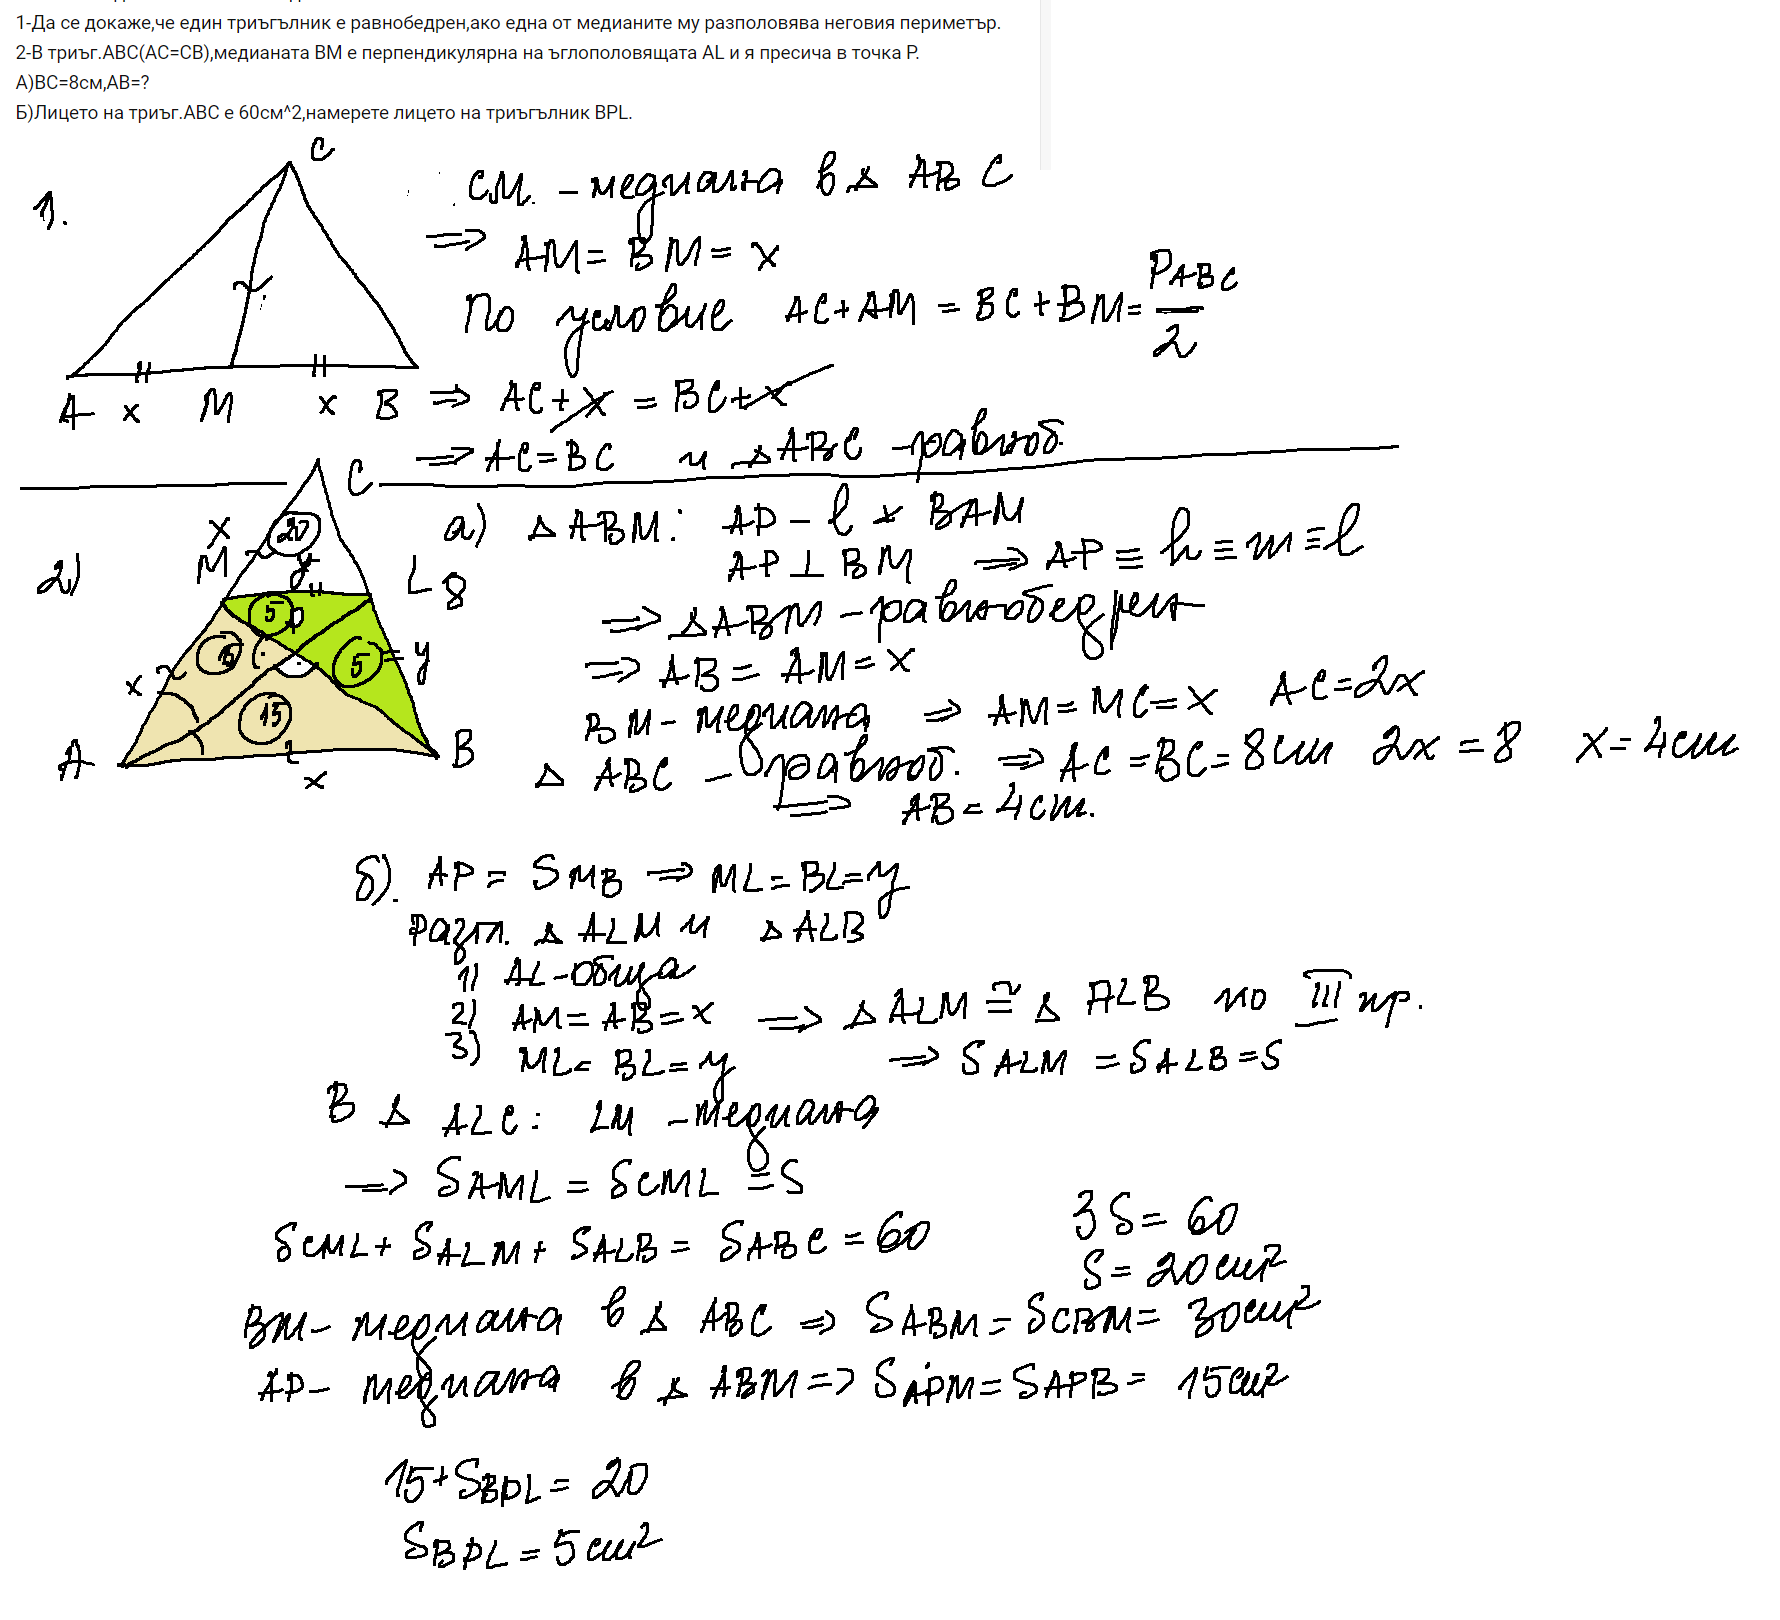 1-Да се докаже,че един триъгълник е равнобедрен,ако една от медианите му разполовява неговия периметър.
2-В триъг.ABC(AC=CB),медианата BM е перпендикулярна на ъглополовящата AL и я пресича в точка P.
А)BC=8см,AB=?
Б)Лицето на триъг.ABC е 60см^2,намерете лицето на триъгълник BPL.
1.
C
A x M x B
CM. - медиана в Δ ABC
⇒ AM = BM = x
По условие AC+AM = BC+BM = PABC/2
⇒ AC+x = BC+x
⇒ AC=BC и ΔABC - равноб.
2)
C
x 20
M y L 8
5 P
15 5 y
x 15
A x B
а) ΔABM: AP - l ∢ BAM
AP ⊥ BM ⇒ AP ≡ h ≡ m ≡ l
⇒ ΔABM - равнобедрен
⇒ AB = AM = x
BM - медиана ⇒ AM = MC = x AC = 2x
Δ ABC - равноб. ⇒ AC = BC = 8cm 2x = 8 x = 4cm
⇒ AB = 4cm.
б). AP = SMB ⇒ ML = BL = y
Разгл. Δ ALM и Δ ALB
1) AL - обща
2) AM = AB = x ⇒ Δ ALM ≅ Δ ALB по III пр.
3) ML = BL = y ⇒ SALM = SALB = S
В Δ ALC: LM - медиана
⇒ SAML = SCML = S
SCML + SALM + SALB = SABC = 60 3S = 60
S = 20cm²
BM - медиана в Δ ABC ⇒ SABM = SCBM = 30cm²
AP - медиана в Δ ABM ⇒ SAPM = SAPB = 15cm²
15 + SBPL = 20
SBPL = 5cm²